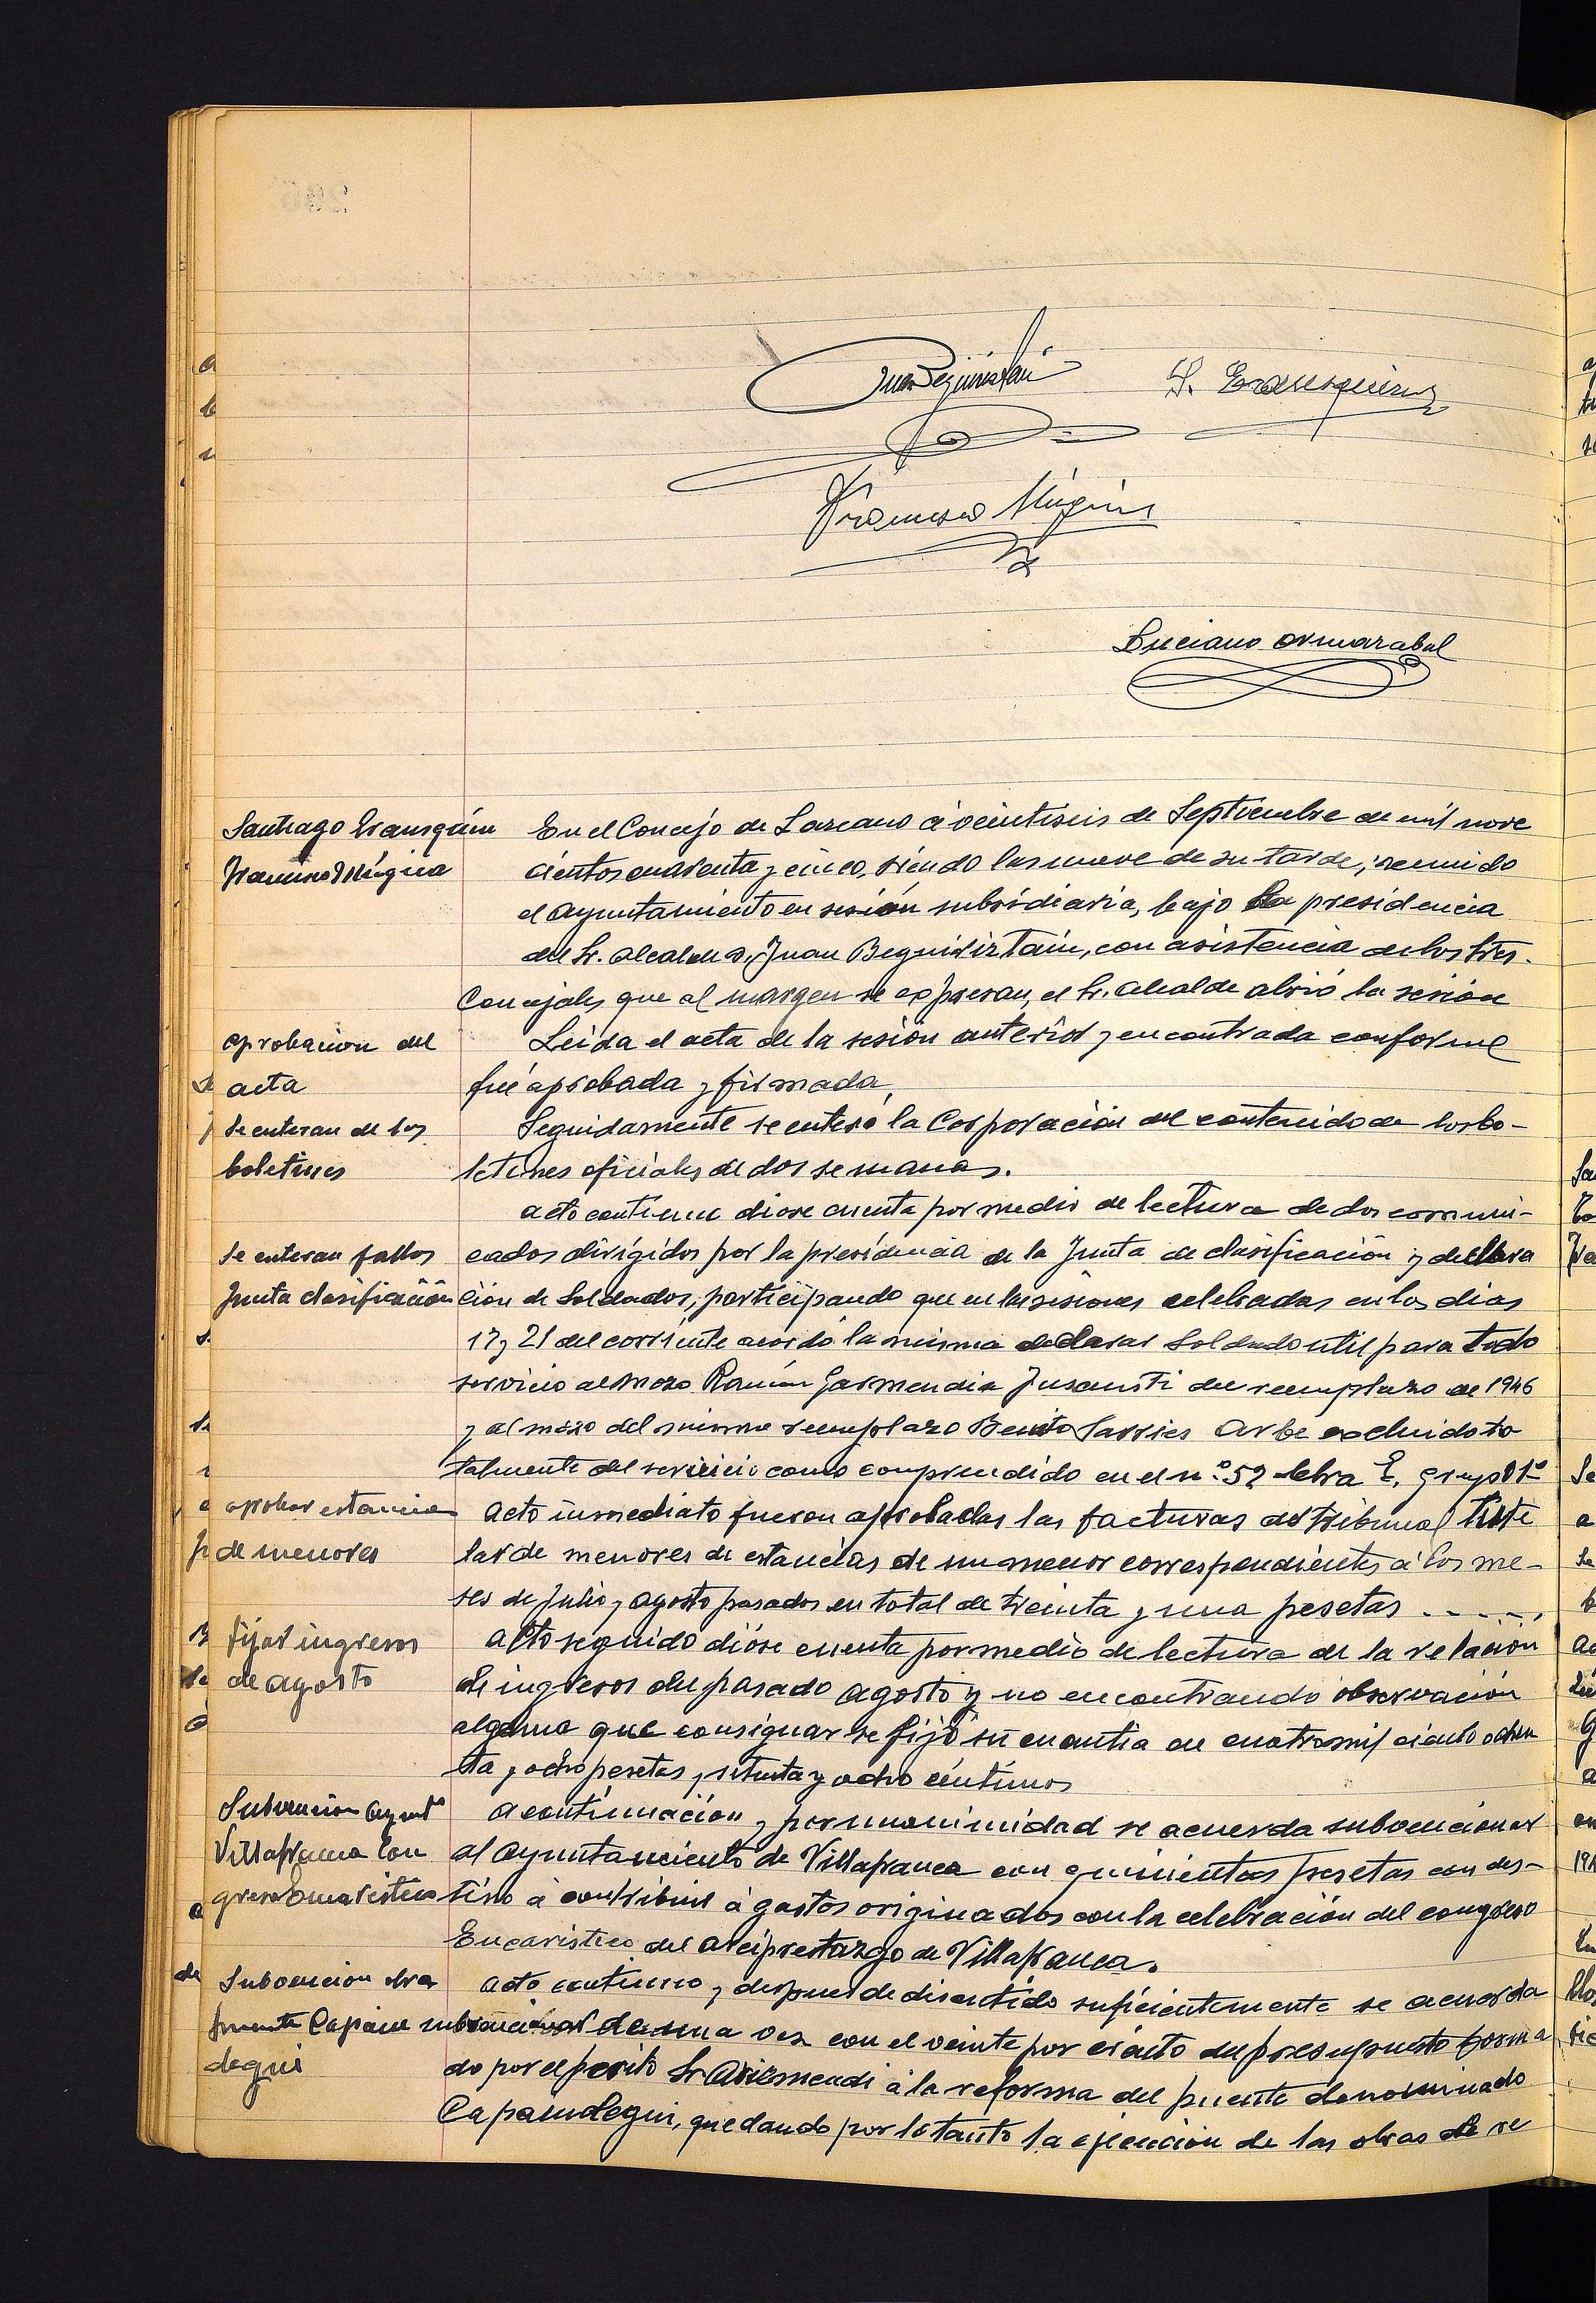 Juan Beguiristain
S. Erausquin
Francisco Múgica
Luciano Armarabal
Santiago Erausquin
Francisco Múgica
En el Concejo de Lazcano á veintiseis de Septiembre de mil nove
cientos cuarenta y cinco, siendo las nueve de su tarde, reunido
el Ayuntamiento en sesión subsidiaria, bajo la presidencia
del Sr. Alcalde D. Juan Beguiristain, con asistencia de los Sres.
Concejales que al margen se expresan, el Sr. Alcalde abrió la sesión
aprobacion del
acta
Leida el acta de la sesión anterior y encontrada conforme
fué aprobada y firmada,
Se enteran de los
boletines
Seguidamente se enteró la Corporación del contenido de los bo-
letines oficiales de dos semanas.
Se enteran fallos
Junta clasificación
acto continuo dióse cuenta por medio de lectura de dos comuni-
cados dirigidos por la presidencia de la Junta de clasificación y declara
ción de Soldados, participando que en las sesiones celebradas en los dias
17 y 21 del corriente acordó la misma declarar Soldado util para todo
servicio al mozo Ramón Garmendia del reemplazo de 1946
y al mozo del mismo reemplazo Benito Sarries Arbe excluido to
talmente del servicio como comprendido en el nº 52 letra E, grupo 1º
aprobar estancias
de menores
Acto inmediato fueron aprobadas las facturas del tribunal Tute
lar de menores de estancias de un menor correspondientes á los me-
ses de Julio y agosto pasados en total de treinta y una pesetas - - - -
fijar ingresos
de agosto
acto seguido dióse cuenta por medio de lectura de la relación
de ingresos del pasado agosto y no encontrando observación
alguna que consignar se fijó su cuantia en cuatro mil ciento ochen
ta y ocho pesetas y setenta y ocho céntimos
Subvención Ayuntº
Villafranca Con
greso Eucaristico
a continuación y por unanimidad se acuerda subvencionar
al Ayuntamiento de Villafranca con quinientas pesetas con des-
tino á contribuir á gastos originados con la celebración del congreso
Eucaristico del arciprestazgo de Villafranca.
Subvencion obra
puente Capain
degui
acto continuo y despues de discutido suficientemente se acuerda
subvencionar de una vez con el veinte por ciento del presupuesto forma
do por el perito Sr Arizmendi á la reforma del puente denominado
Capaindegui, quedando por lo tanto la ejecución de las obras de re